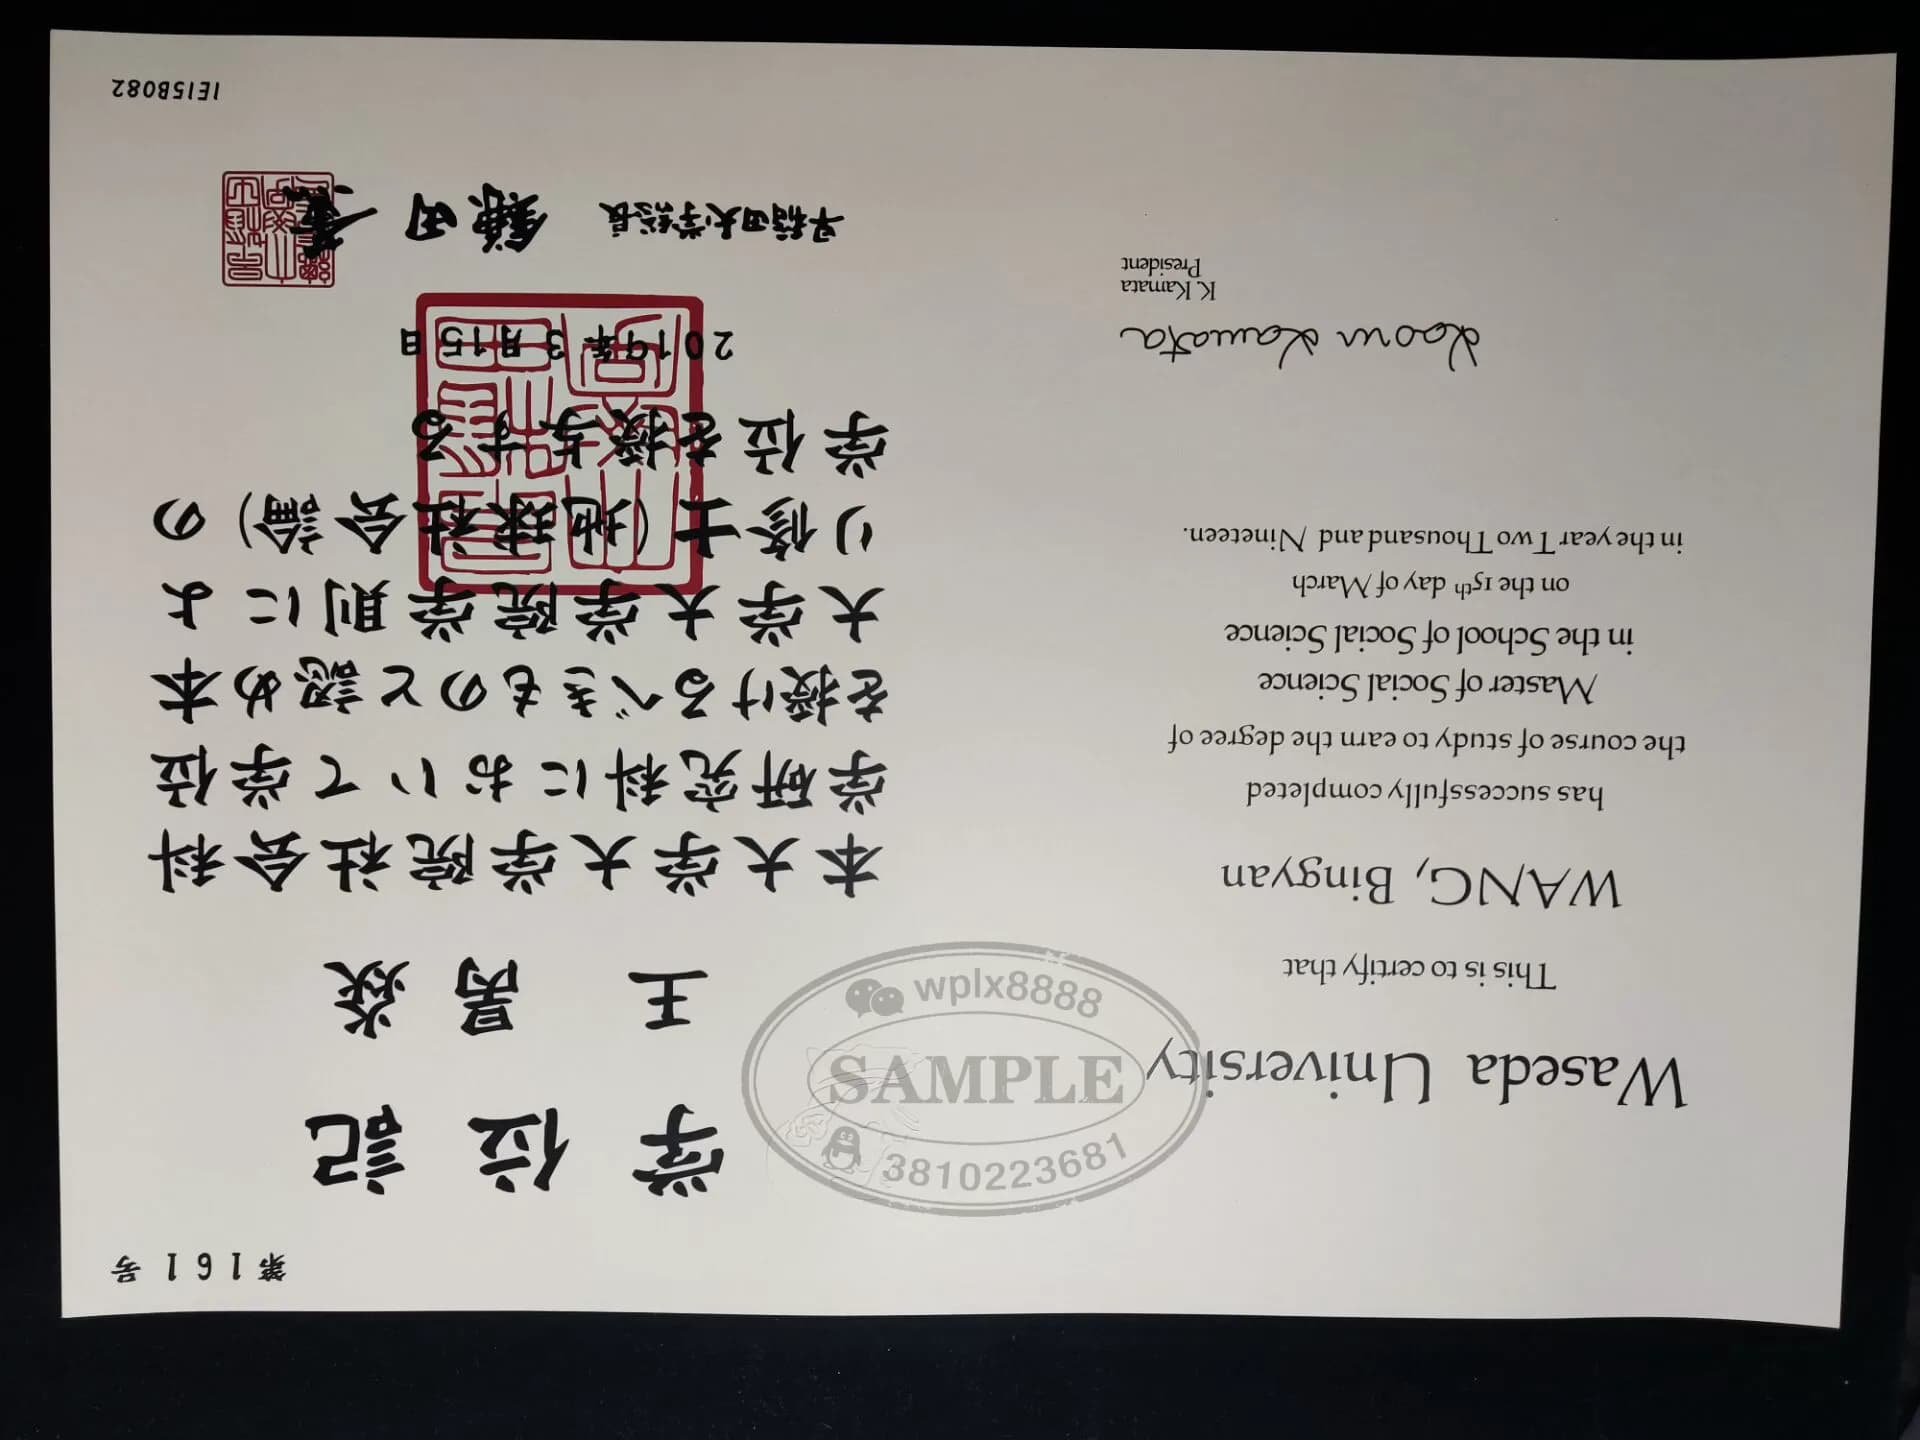 第161号
学位記
王 昺焱
本大学大学院社会科
学研究科において学位
を授けるべきものと認め本
大学大学院学則によ
り修士(地球社会論)の
学位を授与する
2019年3月15日
早稲田大学総長 鎌田 薫
1E15B082
Waseda University
This is to certify that
WANG, Bingyan
has successfully completed
the course of study to earn the degree of
Master of Social Science
in the School of Social Science
on the 15th day of March
in the year Two Thousand and Nineteen.
Kaoru Kamata
K. Kamata
President
wplx8888
SAMPLE
3810223681